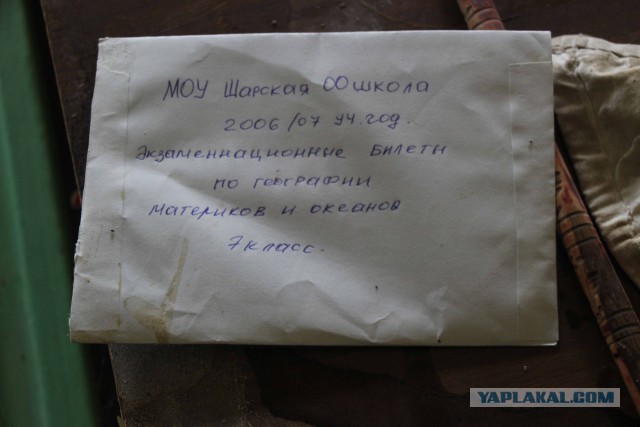 МОУ Шарская ОО школа
2006/07 уч.год.
Экзаменнационные билеты
по географии
материков и океанов
7 класс.
YAPLAKAL.COM